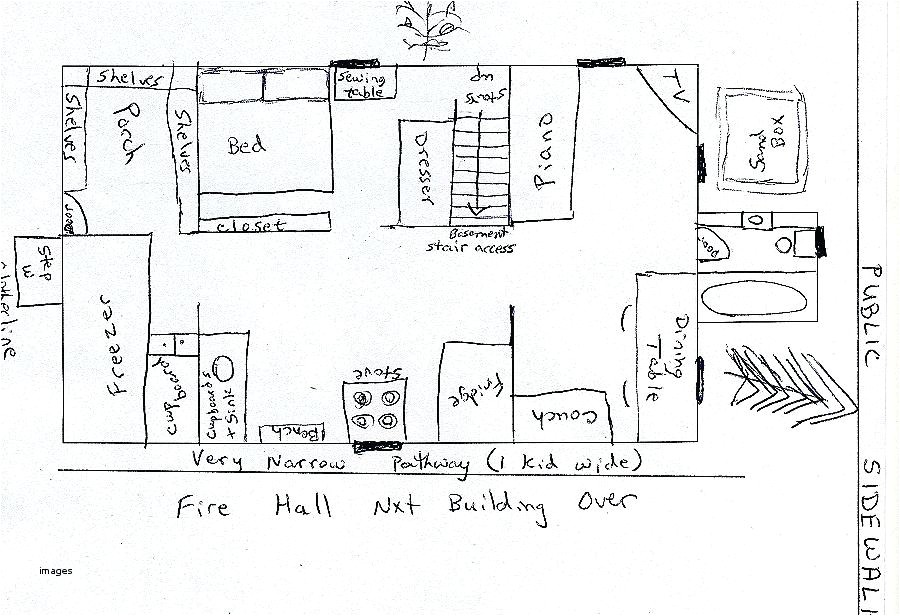 Shelves
Shelves
Porch
Shelves
Bed
closet
Sewing
table
Dresser
stairs
up
Basement
stair access
Piano
TV
Sand
Box
Door
Door
Step
Freezer
cupboard
Sink +
cupboards
Bench
Stove
Fridge
Couch
Dining
Table
Very Narrow Pathway (1 kid wide)
Fire Hall Nxt Building Over
PUBLIC SIDEWAL
images